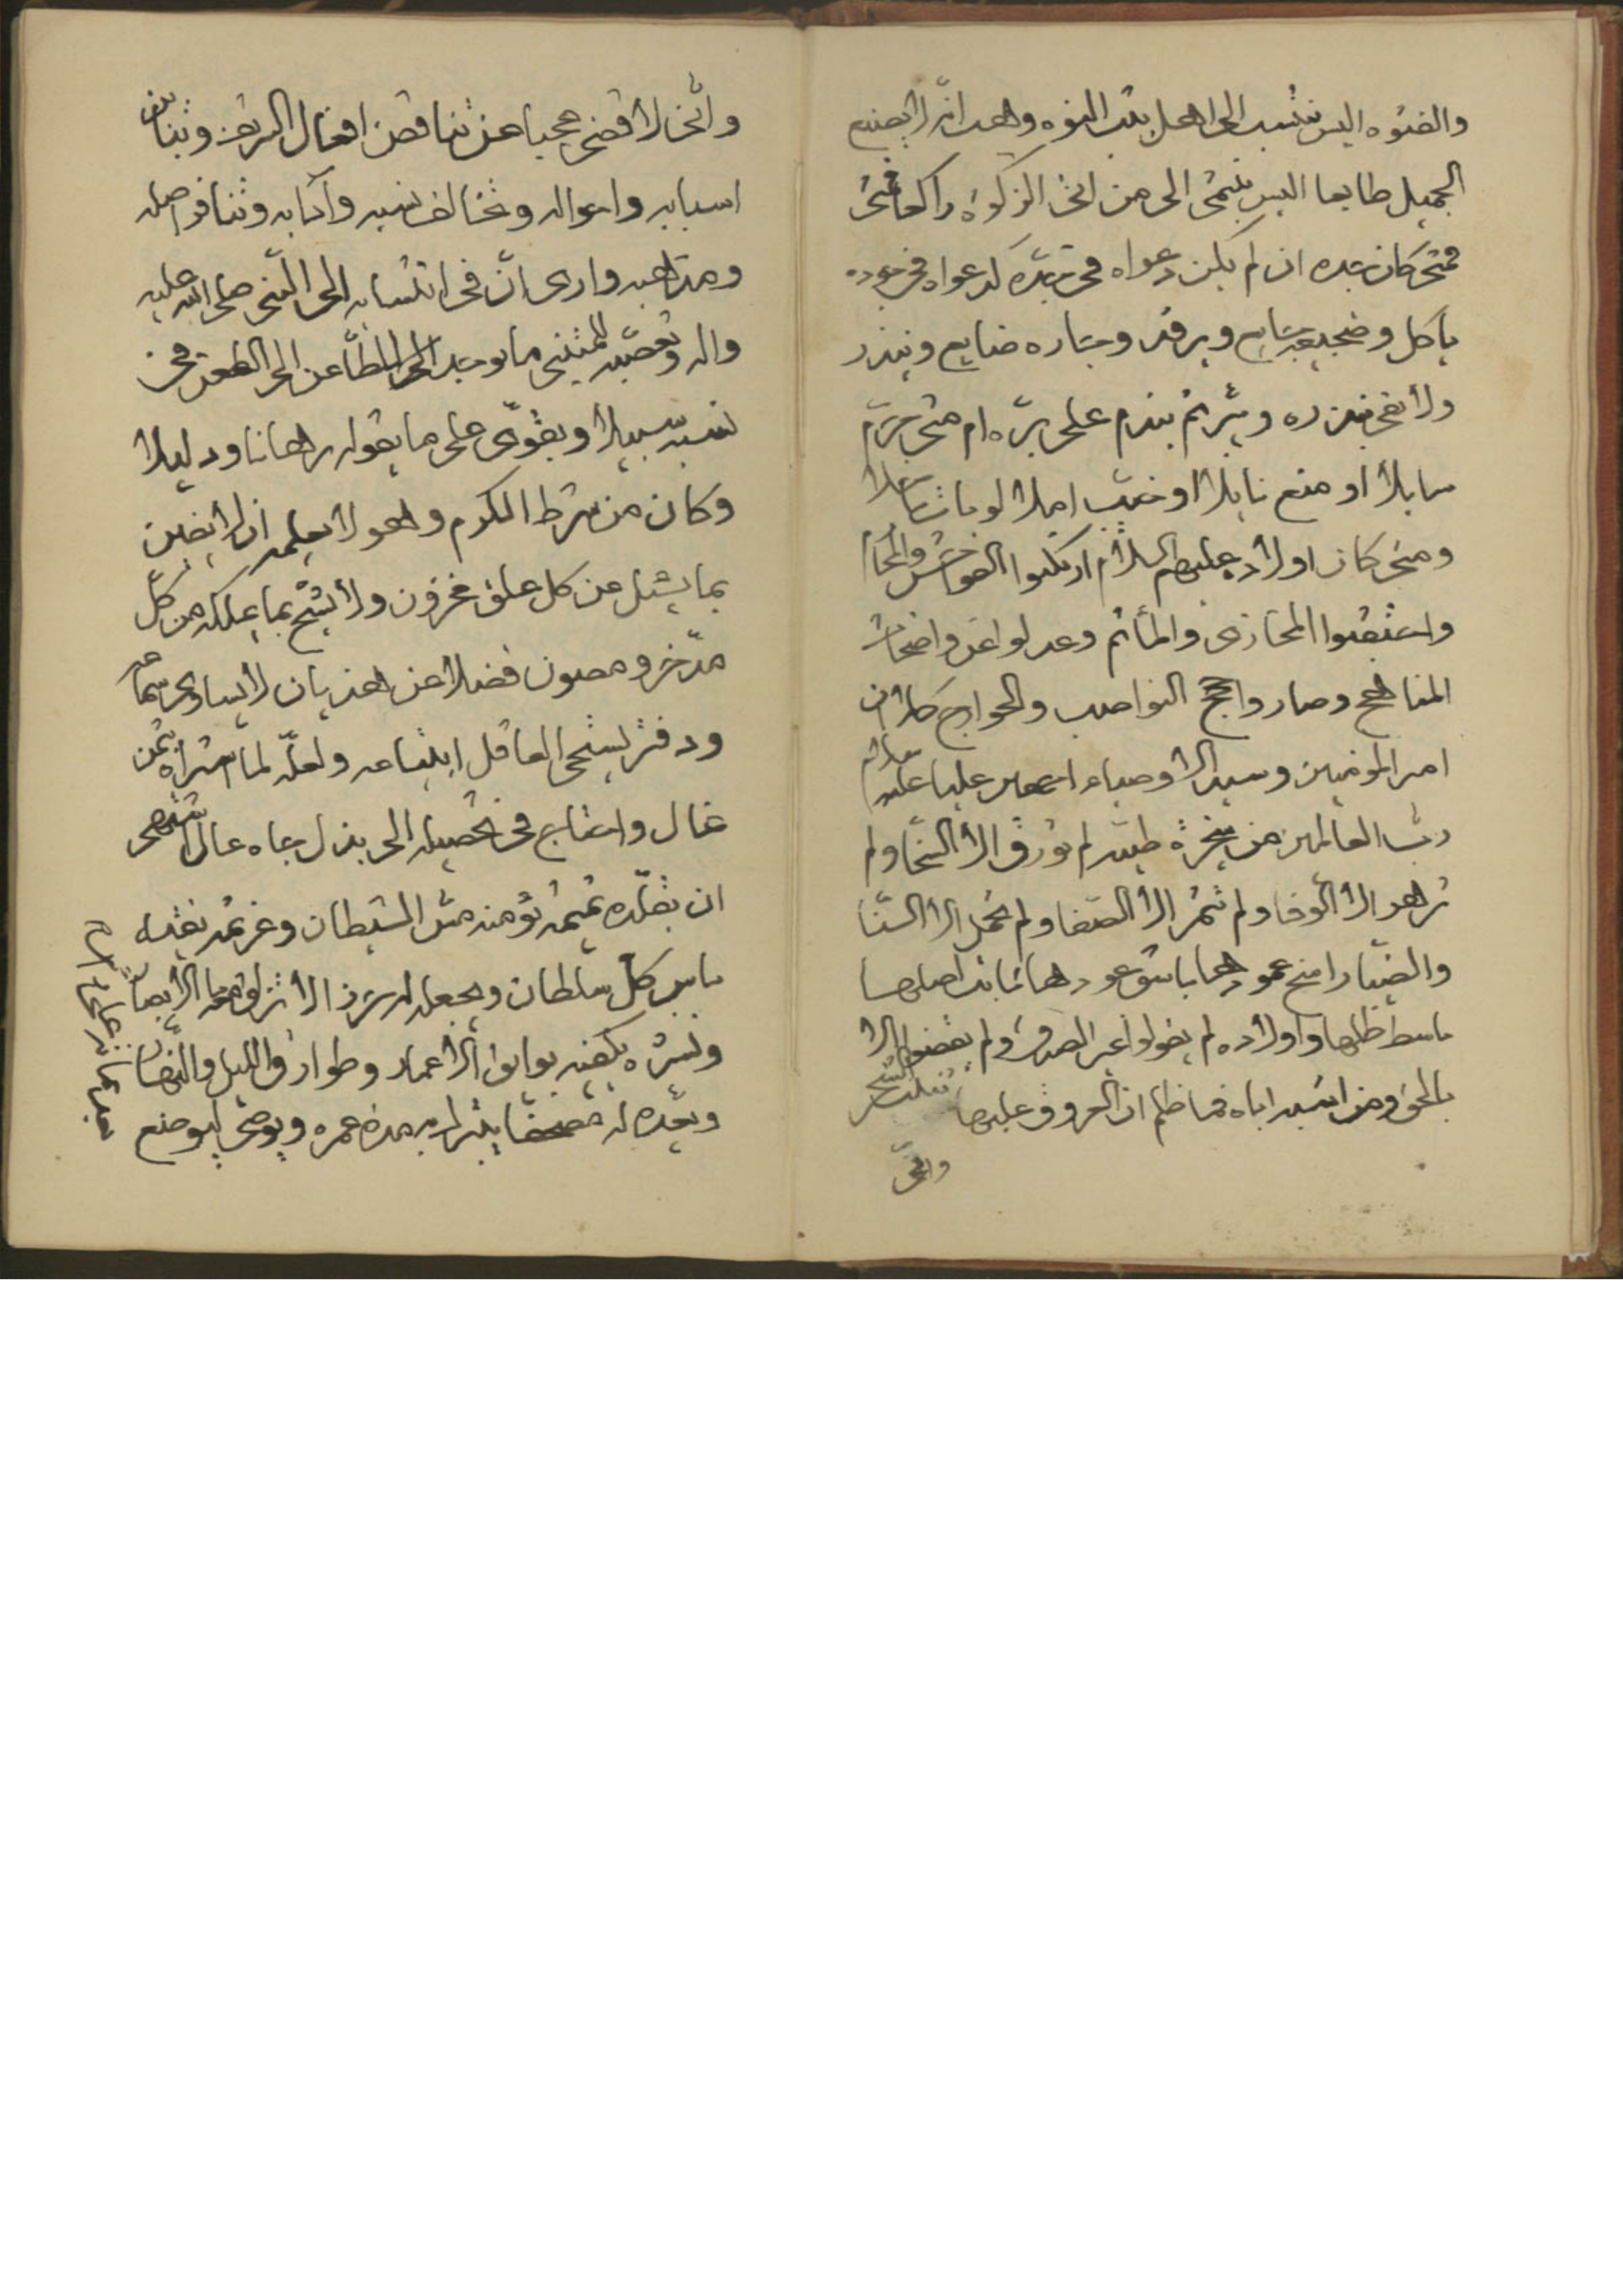 والفتوه اليس ينتسب الى اهل بيت النبوه وهب انه لا يصنع
الجميل طايعا اليس ينتمى الى من اتى الزكوة راكعا فتى
فمتى كان جده ان لم يكن دعواه فى جده كدعواه فى جوده
ياكل وضجيعه جايع ويرقد وجاره ضايع وينذر
ولا يفى بنذره ويبر ثم يندم على بره ام متى حرم
سايلا او منع نايلا او خيب املا
ومتى كان اولاده عليهم السلام ارتكبوا الفواحش والمحارم
واعتقبوا المخازى والمأثم وعدلوا عن واضحات
المناهج وصاروا النواصب والخوارج كلا ان
امير المؤمنين وسيد الاوصياء عليا عليه سلام
رب العالمين من شجرة طيبه لم تورق الا السخا ولم
تزهو الا الوفا ولم تثمر الا الصفا ولم تحمل الا السنا
والضيا راسخ عمودها باسق عودها ثابت اصلها
باسط ظلها واولاده لم يقولوا غير الصدق ولم يقضوا الا
بالحق ومن اشبه اباه فما ظلم ان العروق عليها تنبت الشجر
وانى
وانى لا اقضى عجبا من تناقض افعال الشريف وتنافى
اسبابه واحواله وتخالف نسبه وآدابه وتنافر اصله
ومذاهبه وارى ان فى انتسابه الى النبى صلى الله عليه
واله وتعصبه ما يوجد الطاعن الى الطعن فى
نسبه سبيلا ويقوى على ما يقوله برهانا ودليلا
وكان من شرط الكرم وهو لا يعلمه ان لا يضن
بما يسئل من كل علق مخزون ولا يشح بما يملكه من كل
مدخر ومصون فضلا عن هذيان لا يساوى سماعه
ودفتر يستحى العاقل ابتياعه ولعله لما اشتراه بثمن
غال واحتاج فى تحصيله الى بذل جاه عال اشتهى
ان يقلده تميمة تؤمنه مس الشيطان
باس كل سلطان ويجعله
ونشره يكفيه بوايق الاعمار وطوارق الليل والنهار
ويعده له مصحفا يقرا به مدة عمره ويوصى ليوضع